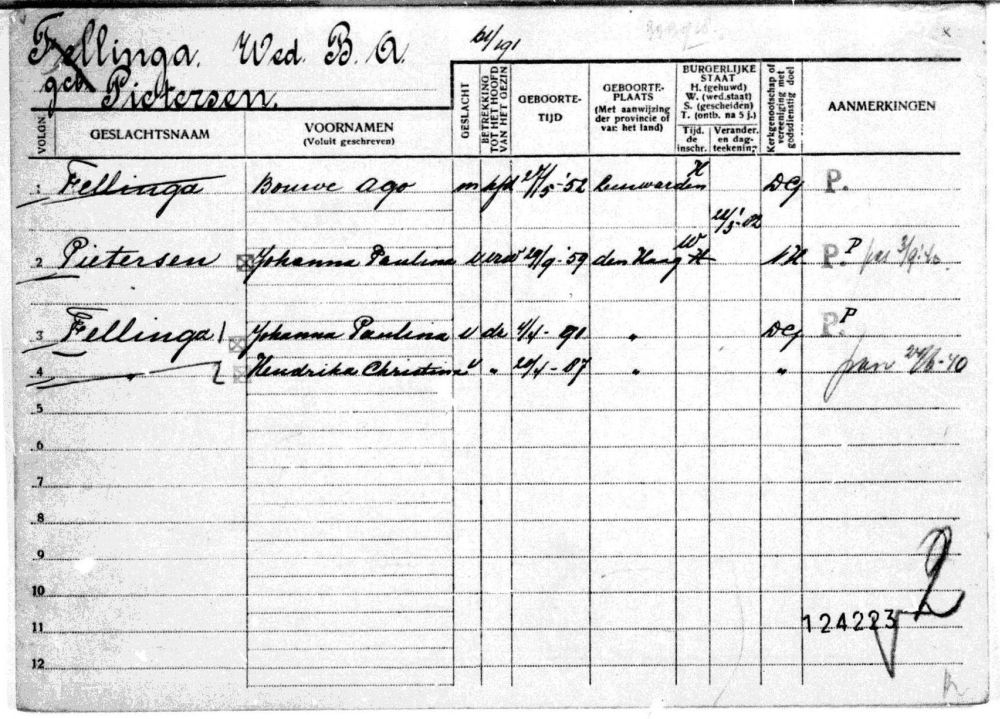 Fellinga. Wed. B. A.
geb. Pietersen.
VOLGN. GESLACHTSNAAM VOORNAMEN (Voluit geschreven) GESLACHT BETREKKING TOT HET HOOFD VAN HET GEZIN GEBOORTE-TIJD GEBOORTE-PLAATS (Met aanwijzing der provincie of van het land) BURGERLIJKE STAAT H. (gehuwd) W. (wed.staat) S. (gescheiden) T. (ontb. na 5 j.) Tijd. de inschr. Verander. en dag-teekening. Kerkgenootschap of vereeniging met godsdienstig doel AANMERKINGEN
1 Fellinga Bouwe Ago m hfd 27/5-'52 Leeuwarden H DG P.
2 Pietersen Johanna Paulina v vrw 29/9-'59 den Haag H W NH P. P
3 Fellinga 1 Johanna Paulina v de 4/4-91 " DG P. P
4 " 2 Hendrika Christina v " 20/4-87 " "
5
6
7
8
9
10
11 124223 2
12